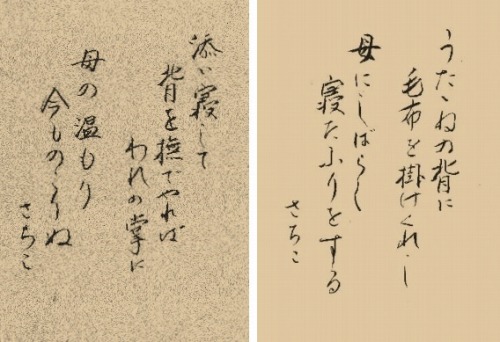 うたゝねの背に
毛布を掛けくれし
母にしばらし
寝たふりをする
さちこ
添い寝して
背を撫でやれば
われの掌に
母の温もり
今ものこりぬ
さちこ